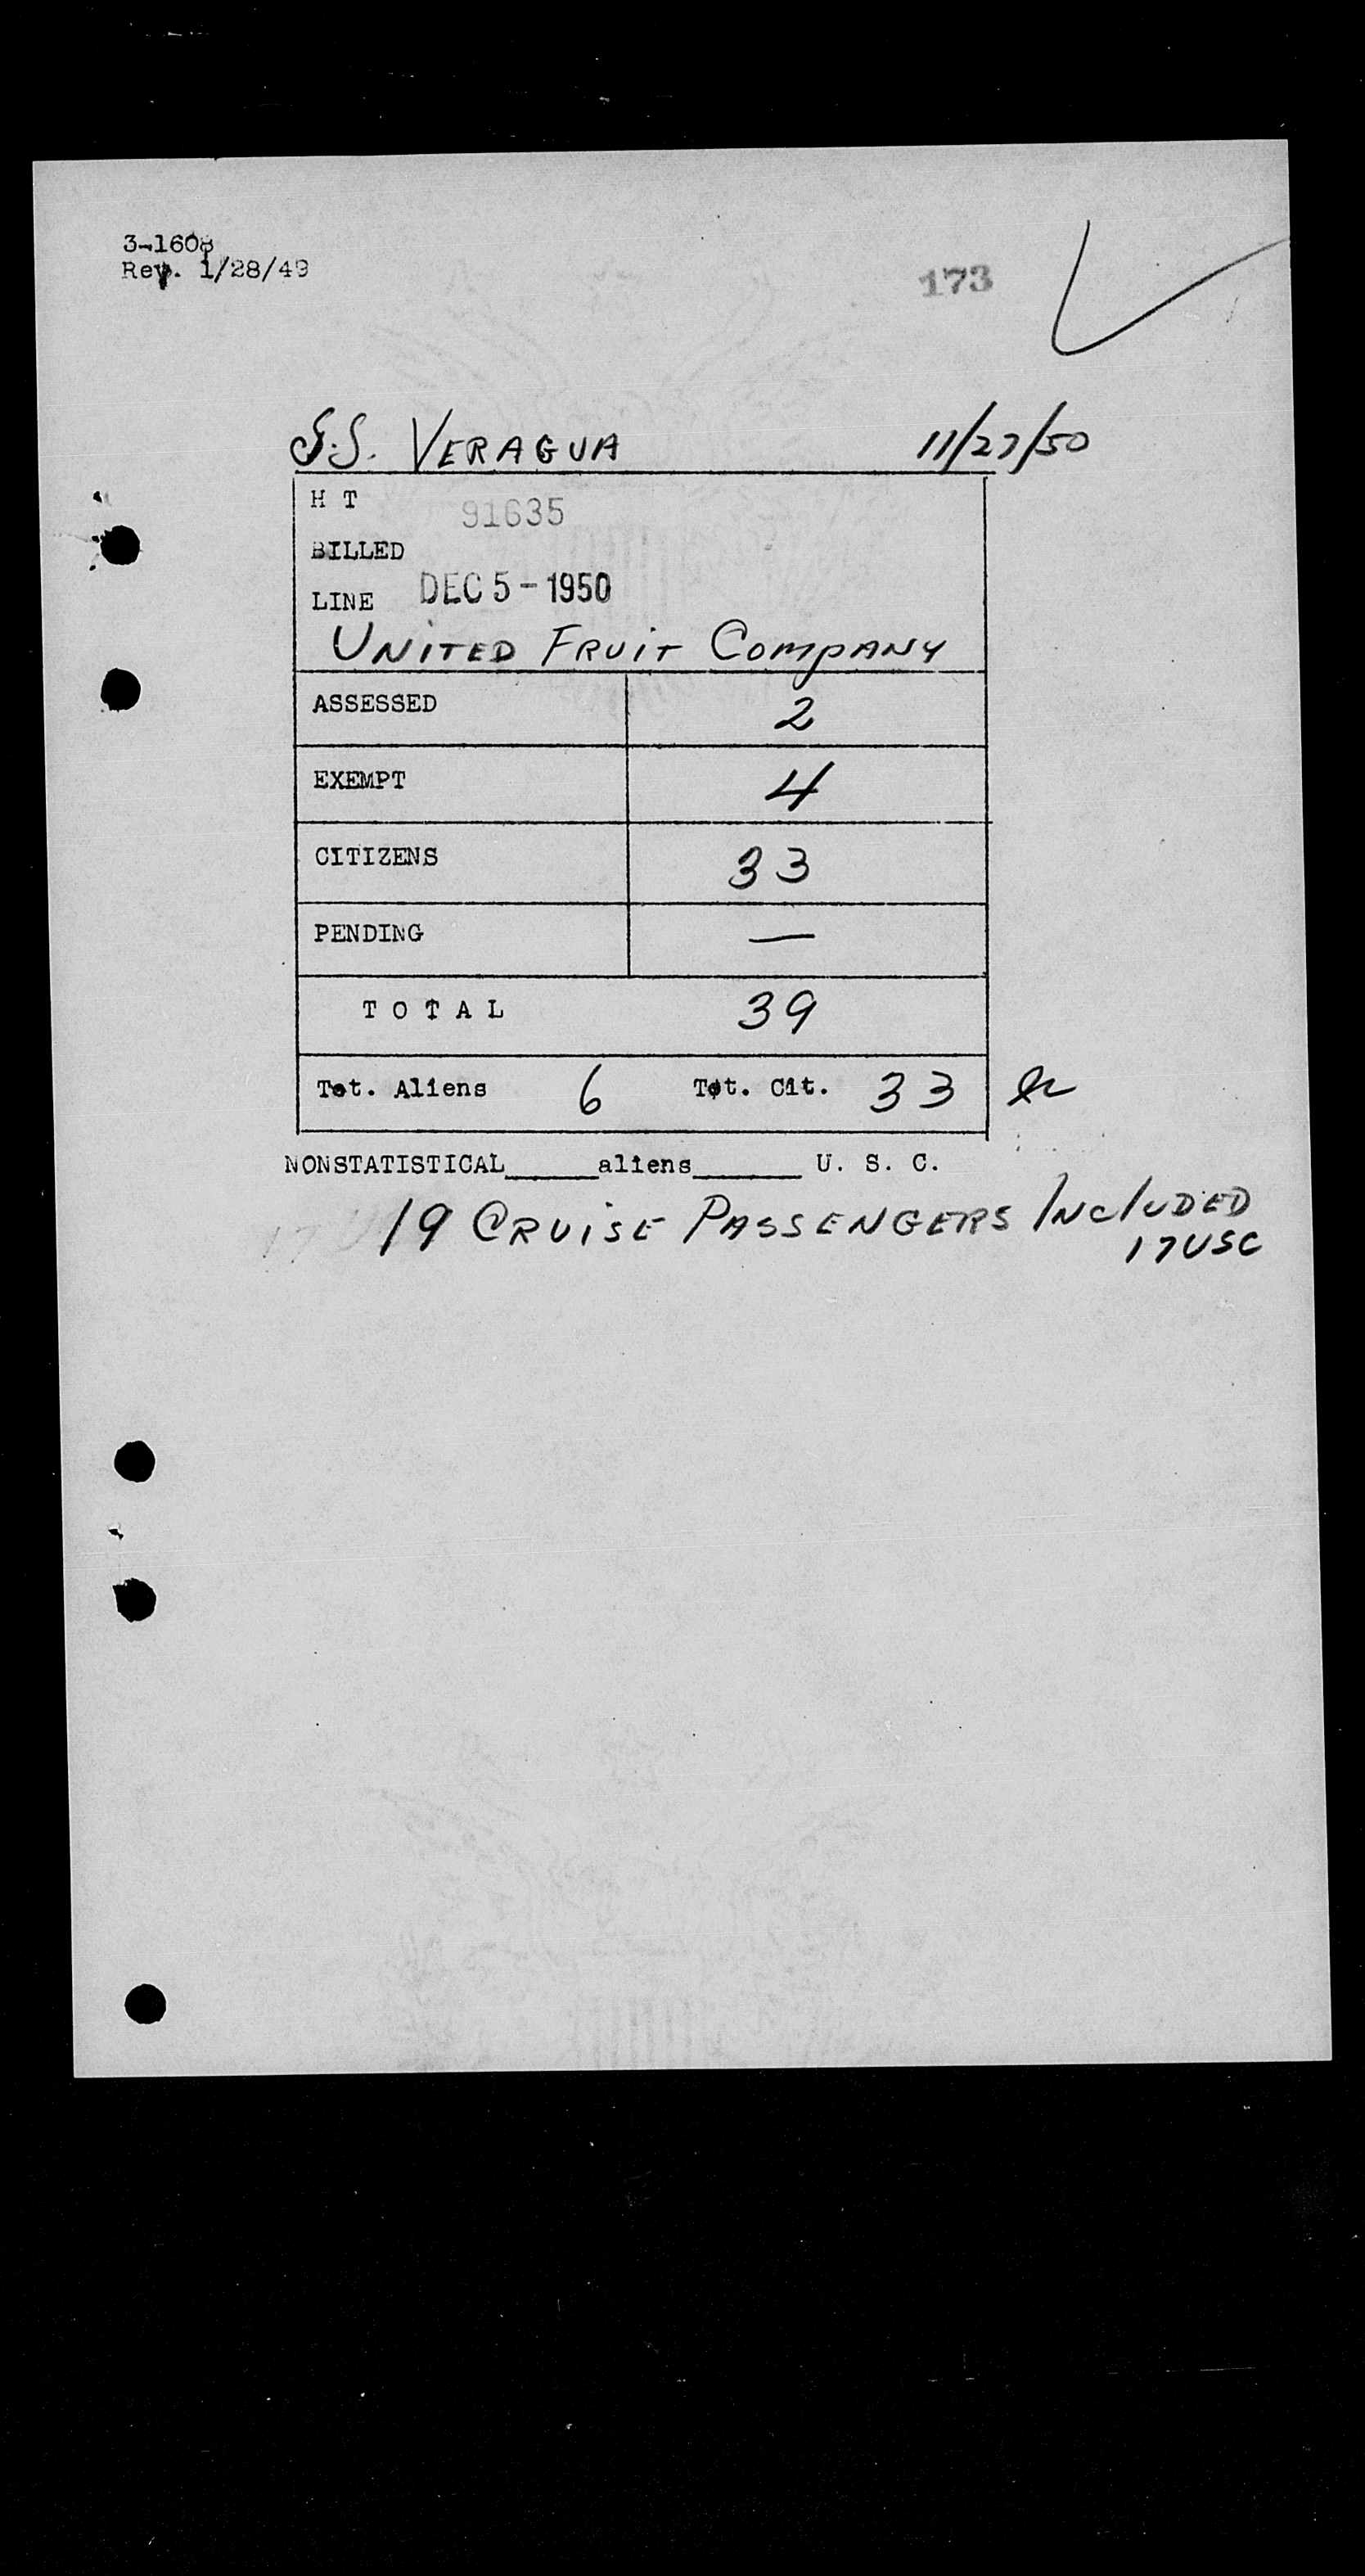 3-1608
Rev. 1/28/49
173
S.S. VERAGUA 11/27/50
H T 91635
BILLED
LINE DEC 5 - 1950
UNITED FRUIT COMPANY
ASSESSED 2
EXEMPT 4
CITIZENS 33
PENDING —
TOTAL 39
Tot. Aliens 6 Tot. Cit. 33
NONSTATISTICAL______aliens_______ U. S. C.
19 CRUISE PASSENGERS INCLUDED
17 USC